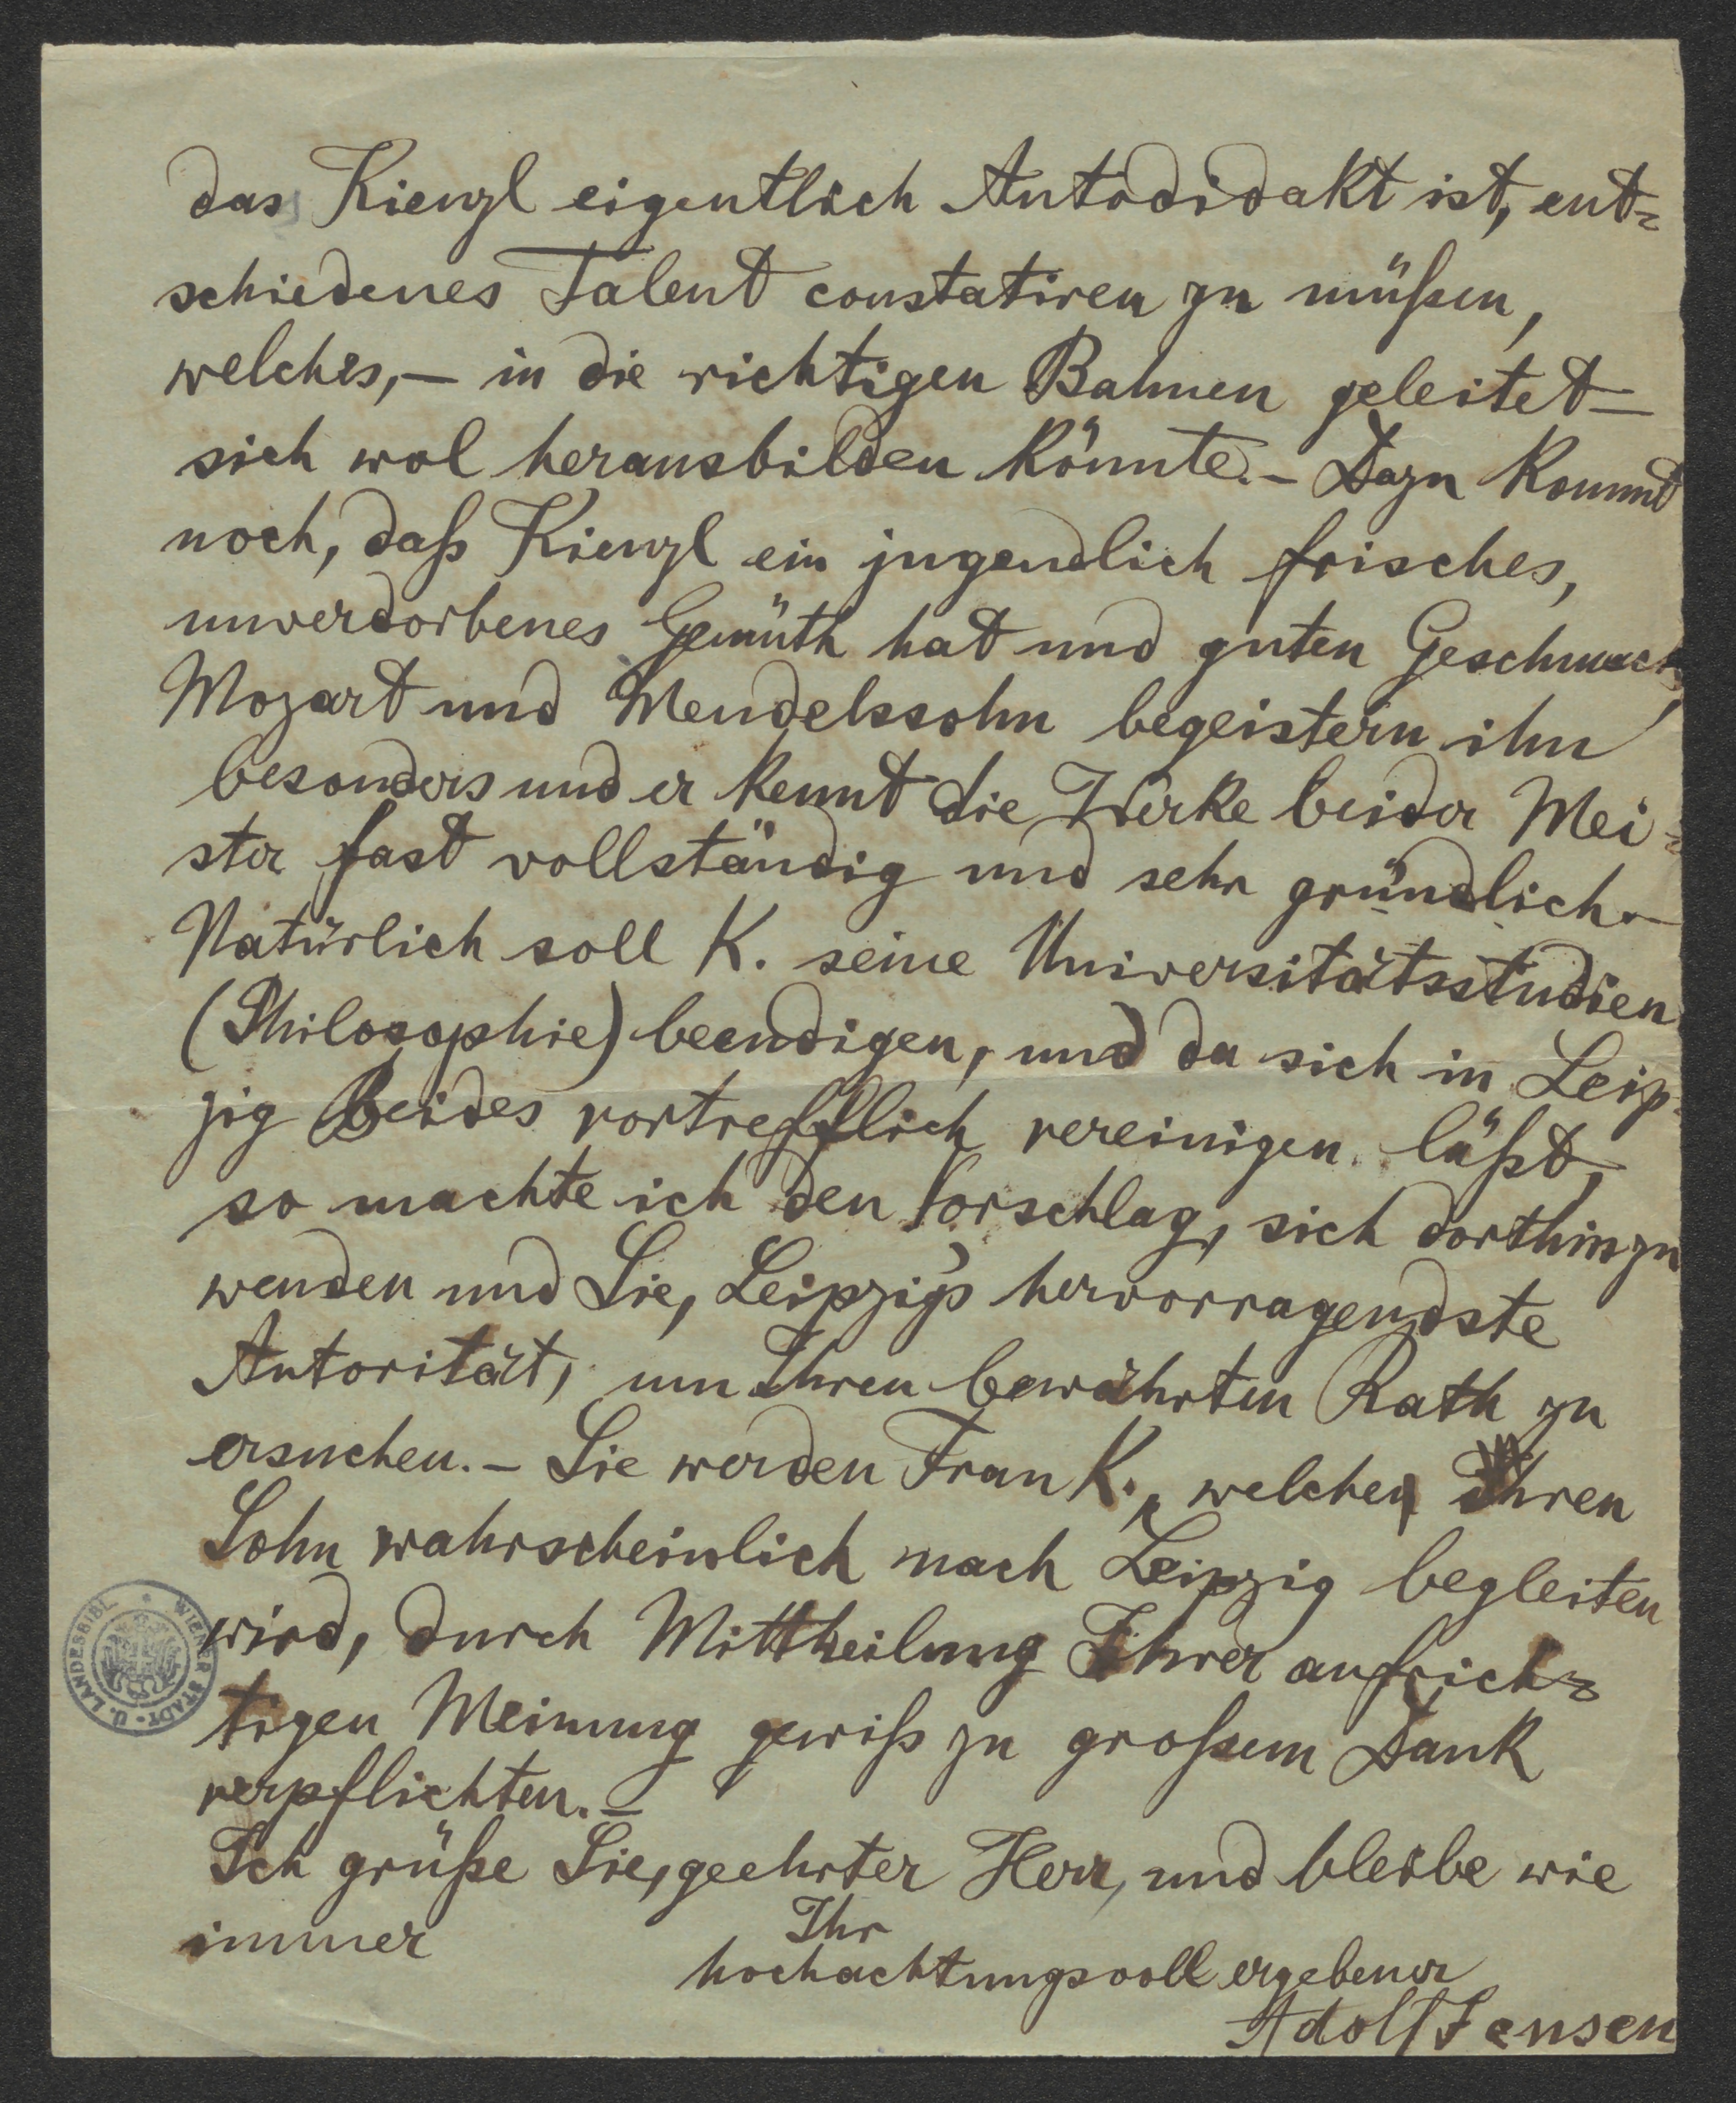 das Kienzl eigentlich Autodidakt ist, ent=
schiedenes Talent constatiren zu müßen,
welches, – in die richtigen Bahnen geleitet –
sich wol herausbilden könnte. – Dazu kommt
noch, daß Kienzl ein jugendlich frisches,
unverdorbenes Gemüth hat und guten Geschmack;
Mozart und Mendelssohn begeistern ihn
besonders und er kennt die Werke beider Mei=
ster fast vollständig und sehr gründlich. –
Natürlich soll K. seine Universitätsstudien
(Philosophie) beendigen, und da sich in Leip=
zig Beides vortrefflich vereinigen läßt,
so machte ich den Vorschlag, sich dorthin zu
wenden und Sie, Leipzig's hervorragendste
Autorität, um Ihren bewährten Rath zu
ersuchen. – Sie werden Frau K., welche Ihren
Sohn wahrscheinlich nach Leipzig begleiten
wird, durch Mittheilung Ihrer aufrich=
tigen Meinung gewiß zu großem Dank
verpflichten. –
Ich grüße Sie, geehrter Herr, und bleibe wie
immer Ihr
hochachtungsvoll ergebener
Adolf Jensen
WIENER STADT- U. LANDESBIBL.